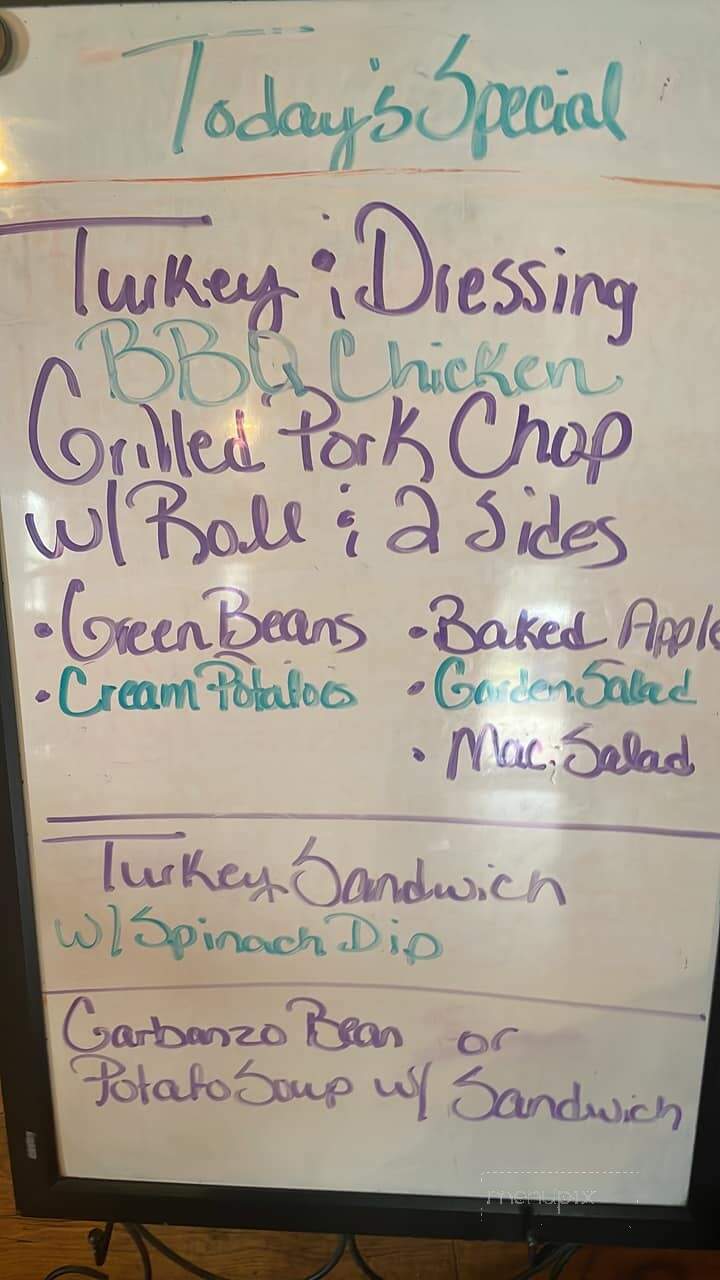 Today's Special
Turkey & Dressing
BBQ Chicken
Grilled Pork Chop
w/ Roll & 2 Sides
• Green Beans
• Cream Potatoes
• Baked Apple
• Garden Salad
• Mac. Salad
Turkey Sandwich
w/ Spinach Dip
Garbanzo Bean or
Potato Soup w/ Sandwich
menupix